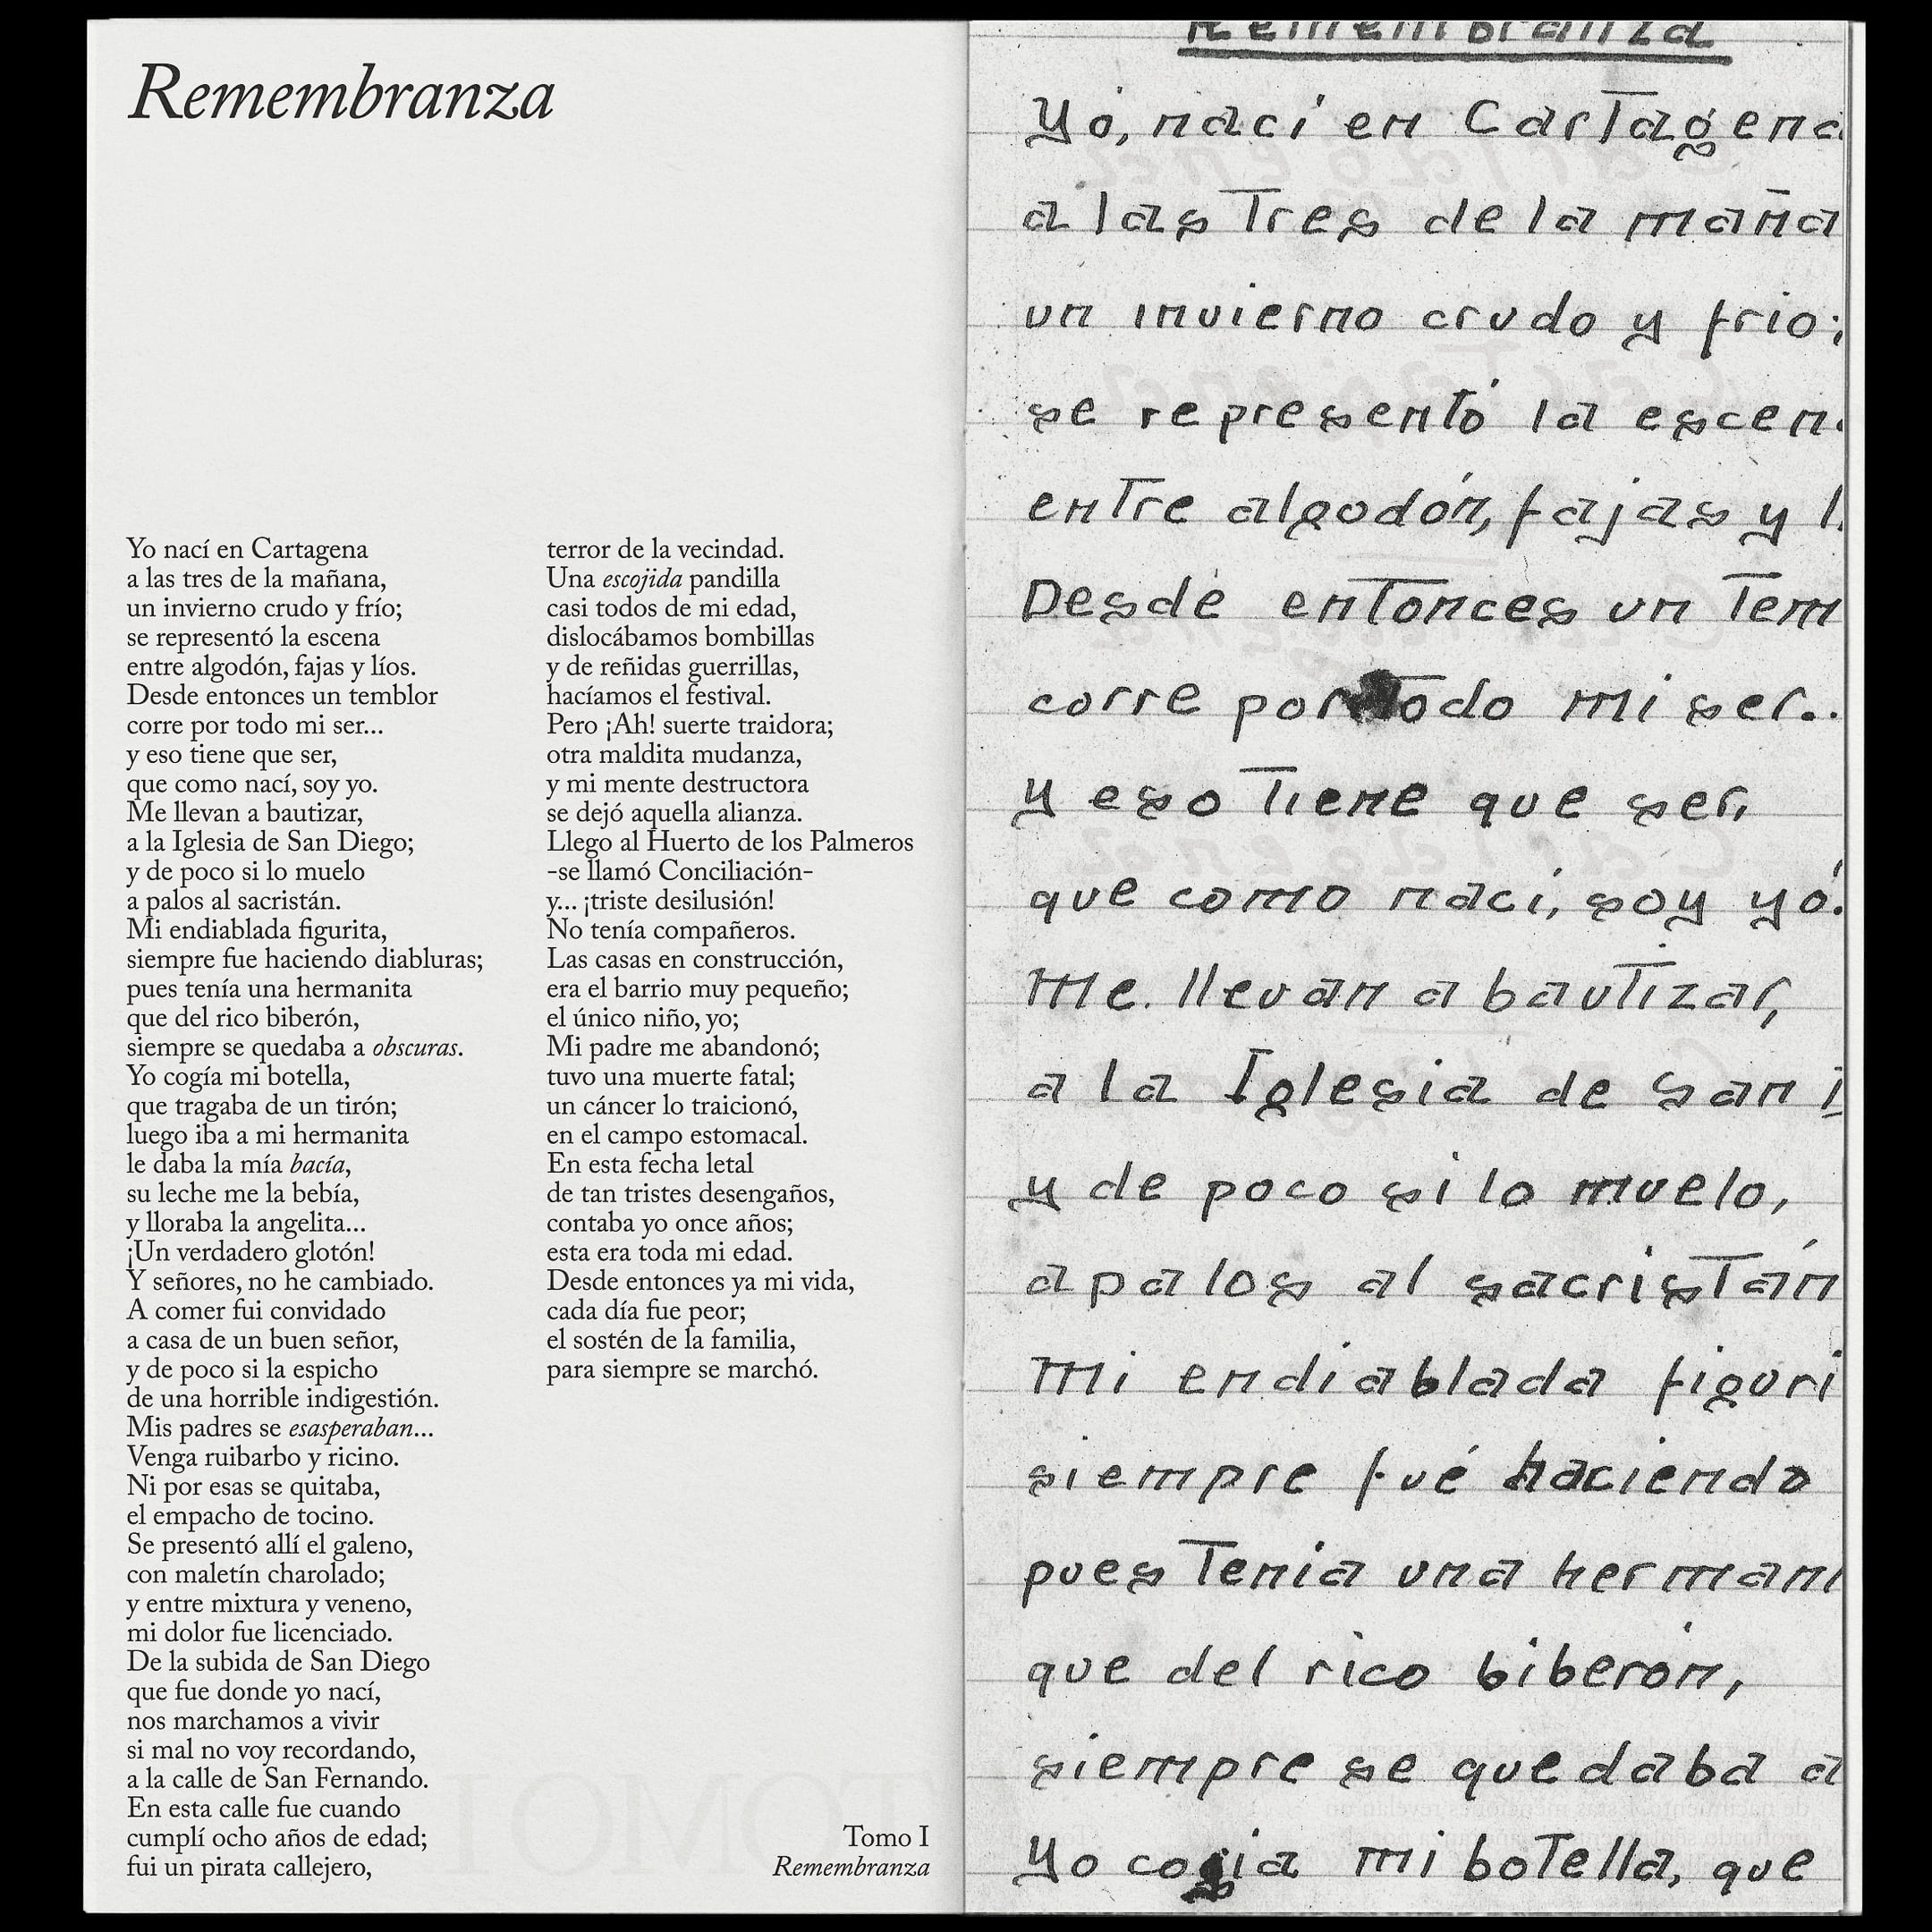 Remembranza
Yo nací en Cartagena
a las tres de la mañana,
un invierno crudo y frío;
se representó la escena
entre algodón, fajas y líos.
Desde entonces un temblor
corre por todo mi ser...
y eso tiene que ser,
que como nací, soy yo.
Me llevan a bautizar,
a la Iglesia de San Diego;
y de poco si lo muelo
a palos al sacristán.
Mi endiablada figurita,
siempre fue haciendo diabluras;
pues tenía una hermanita
que del rico biberón,
siempre se quedaba a obscuras.
Yo cogía mi botella,
que tragaba de un tirón;
luego iba a mi hermanita
le daba la mía bacía,
su leche me la bebía,
y lloraba la angelita...
¡Un verdadero glotón!
Y señores, no he cambiado.
A comer fui convidado
a casa de un buen señor,
y de poco si la espicho
de una horrible indigestión.
Mis padres se esasperaban...
Venga ruibarbo y ricino.
Ni por esas se quitaba,
el empacho de tocino.
Se presentó allí el galeno,
con maletín charolado;
y entre mixtura y veneno,
mi dolor fue licenciado.
De la subida de San Diego
que fue donde yo nací,
nos marchamos a vivir
si mal no voy recordando,
a la calle de San Fernando.
En esta calle fue cuando
cumplí ocho años de edad;
fui un pirata callejero,
terror de la vecindad.
Una escojida pandilla
casi todos de mi edad,
dislocábamos bombillas
y de reñidas guerrillas,
hacíamos el festival.
Pero ¡Ah! suerte traidora;
otra maldita mudanza,
y mi mente destructora
se dejó aquella alianza.
Llego al Huerto de los Palmeros
-se llamó Conciliación-
y... ¡triste desilusión!
No tenía compañeros.
Las casas en construcción,
era el barrio muy pequeño;
el único niño, yo;
Mi padre me abandonó;
tuvo una muerte fatal;
un cáncer lo traicionó,
en el campo estomacal.
En esta fecha letal
de tan tristes desengaños,
contaba yo once años;
esta era toda mi edad.
Desde entonces ya mi vida,
cada día fue peor;
el sostén de la familia,
para siempre se marchó.
Tomo I
Remembranza
Remembranza
Yó, nací en Cartagena
a las tres de la maña
un invierno crudo y frio;
se representó la escen
entre algodón, fajas y l
Desde entonces un tem
corre por todo mi ser..
y eso tiene que ser,
que como nací, soy yó.
me llevan a bautizar,
a la Iglesia de San D
y de poco si lo muelo,
a palos al sacristán
mi endiablada figuri
siempre fué haciendo
pues tenia una hermani
que del rico biberón,
siempre se quedaba a
Yo cogia mi botella, que